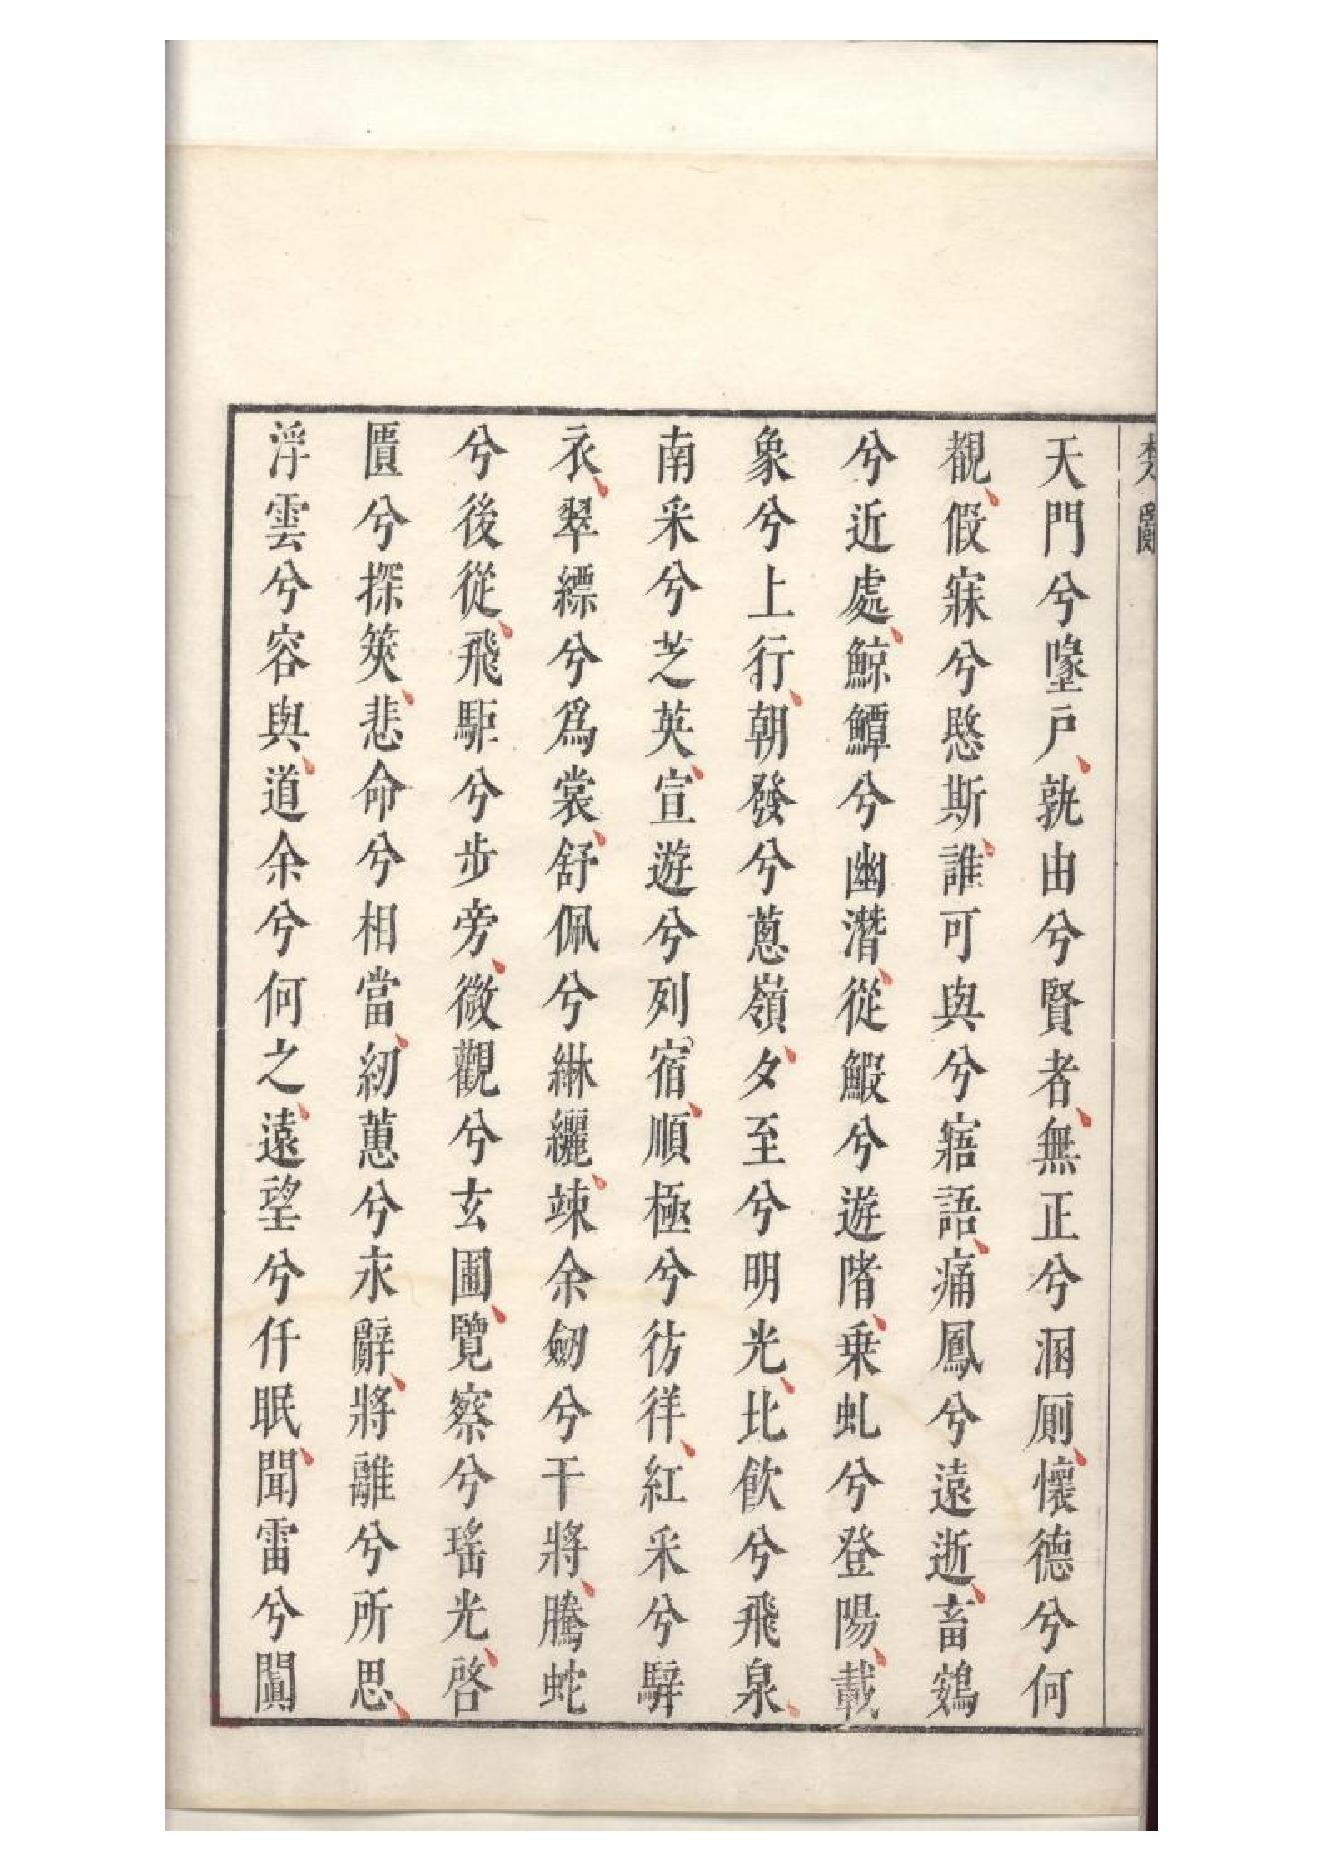 天門兮墬戶、孰由兮賢者、無正兮溷厠、懷德兮何
覩、假寐兮愍斯、誰可與兮寤語、痛鳳兮遠逝、畜鴳
兮近處、鯨鱏兮幽潛、從鰕兮遊陼、乗虬兮登陽、載
象兮上行、朝發兮蔥嶺、夕至兮明光、比飮兮飛泉、
南采兮芝英、宣遊兮列宿、順極兮彷徉、紅采兮騂
衣、翠縹兮爲裳、舒佩兮綝纚、竦余劒兮干將、騰蛇
兮後從、飛駏兮步旁、微觀兮玄圃、覽察兮瑤光、啓
匱兮探筴、悲命兮相當、紉蕙兮永辭、將離兮所思、
浮雲兮容與、道余兮何之、遠望兮仟眠、聞雷兮闐